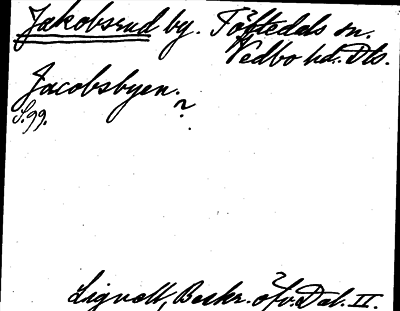 Jakobsrud by. Töftedals sn.
Vedbo hd. Dls.
Jacobsbyen.
S. 99. ?
Lignell, Beskr. öfv. Dal. II.